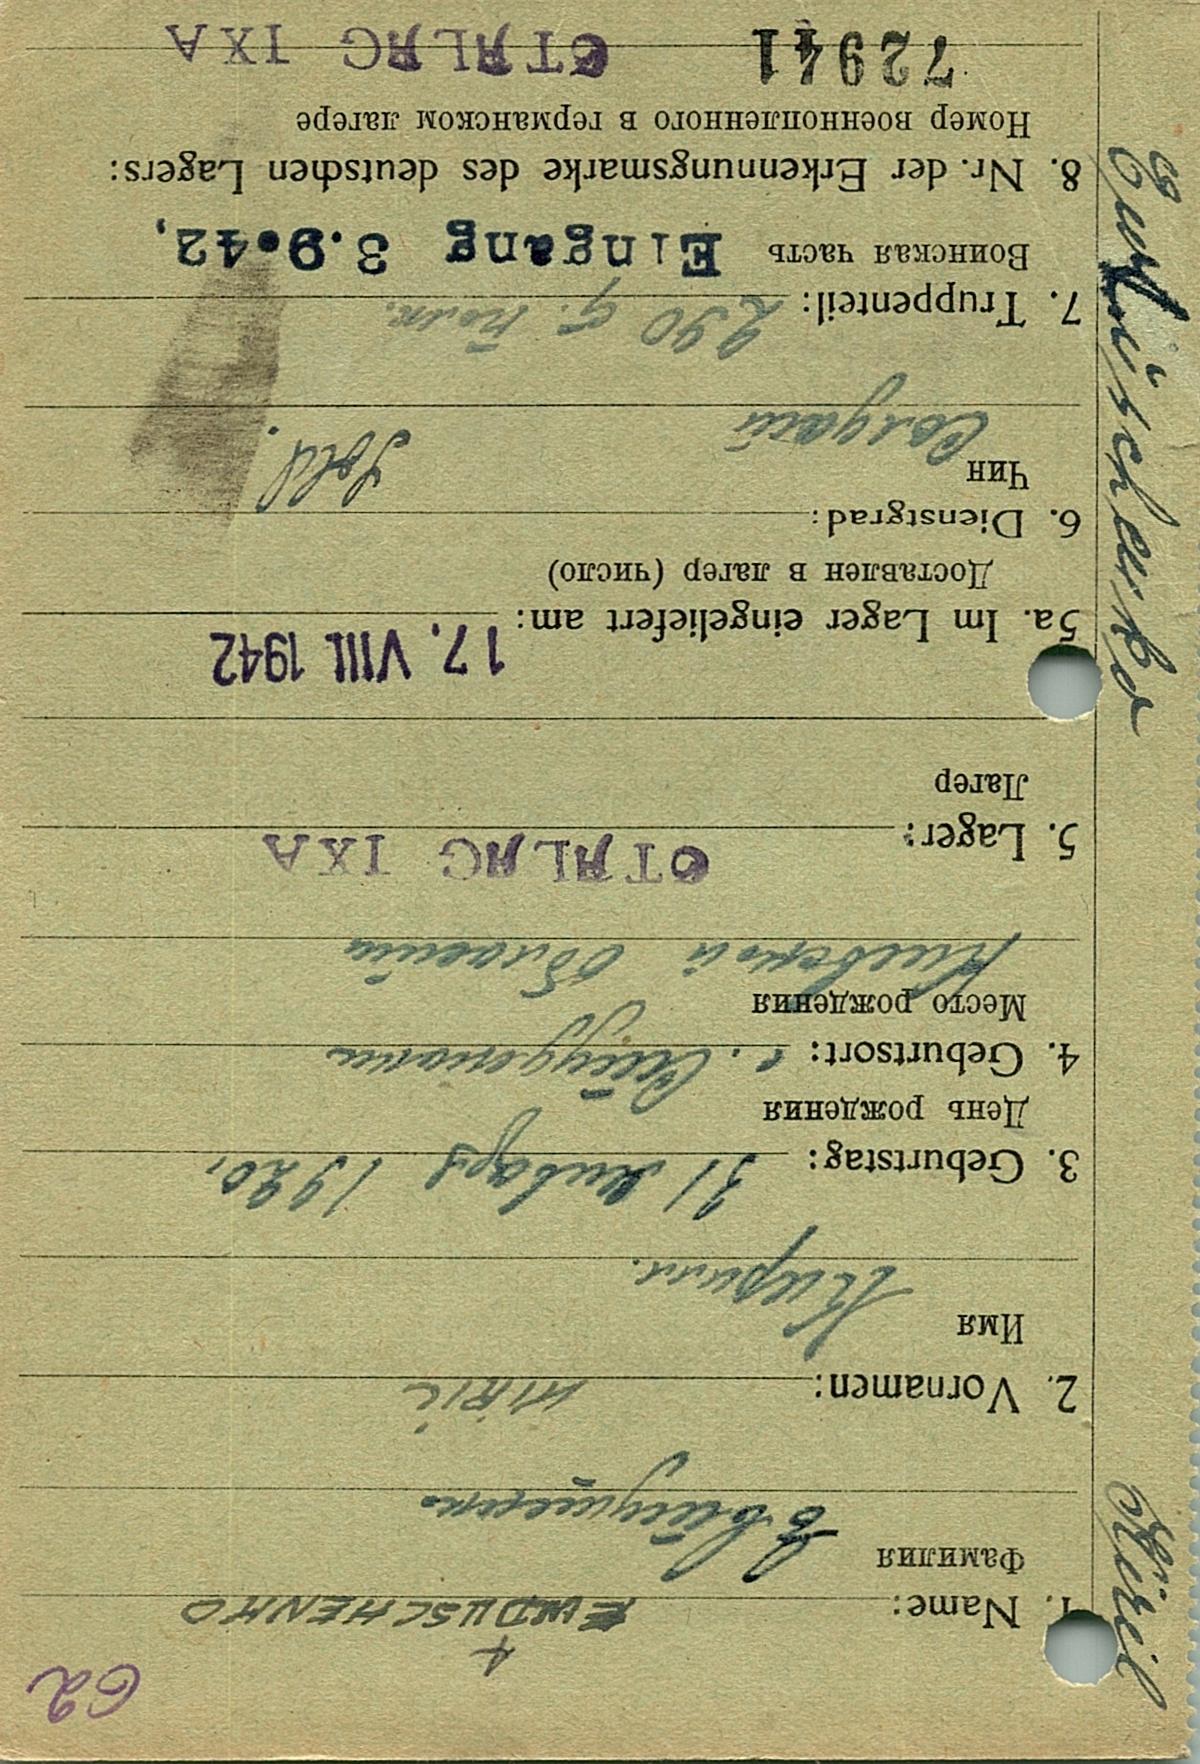 62
1. Name: EWDUSCHENKO
4
Фамилия Евтушенко
2. Vornamen: KIRIL
Имя Кирилл.
3. Geburtstag: 31 января 1920,
День рождения
4. Geburtsort: с.
Место рождения
Киевской области
5. Lager: STALAG IXA
Лагер
5a. Im Lager eingeliefert am: 17. VIII. 1942
Доставлен в лагер (число)
6. Dienstgrad: Sold.
Чин Солдат
7. Truppenteil: 290 полк.
Воинская часть Eingang 3.9.42,
8. Nr. der Erkennungsmarke des deutschen Lagers:
Номер военнопленного в германском лагере
72941 STALAG IXA
Kiril Ewtüschenko